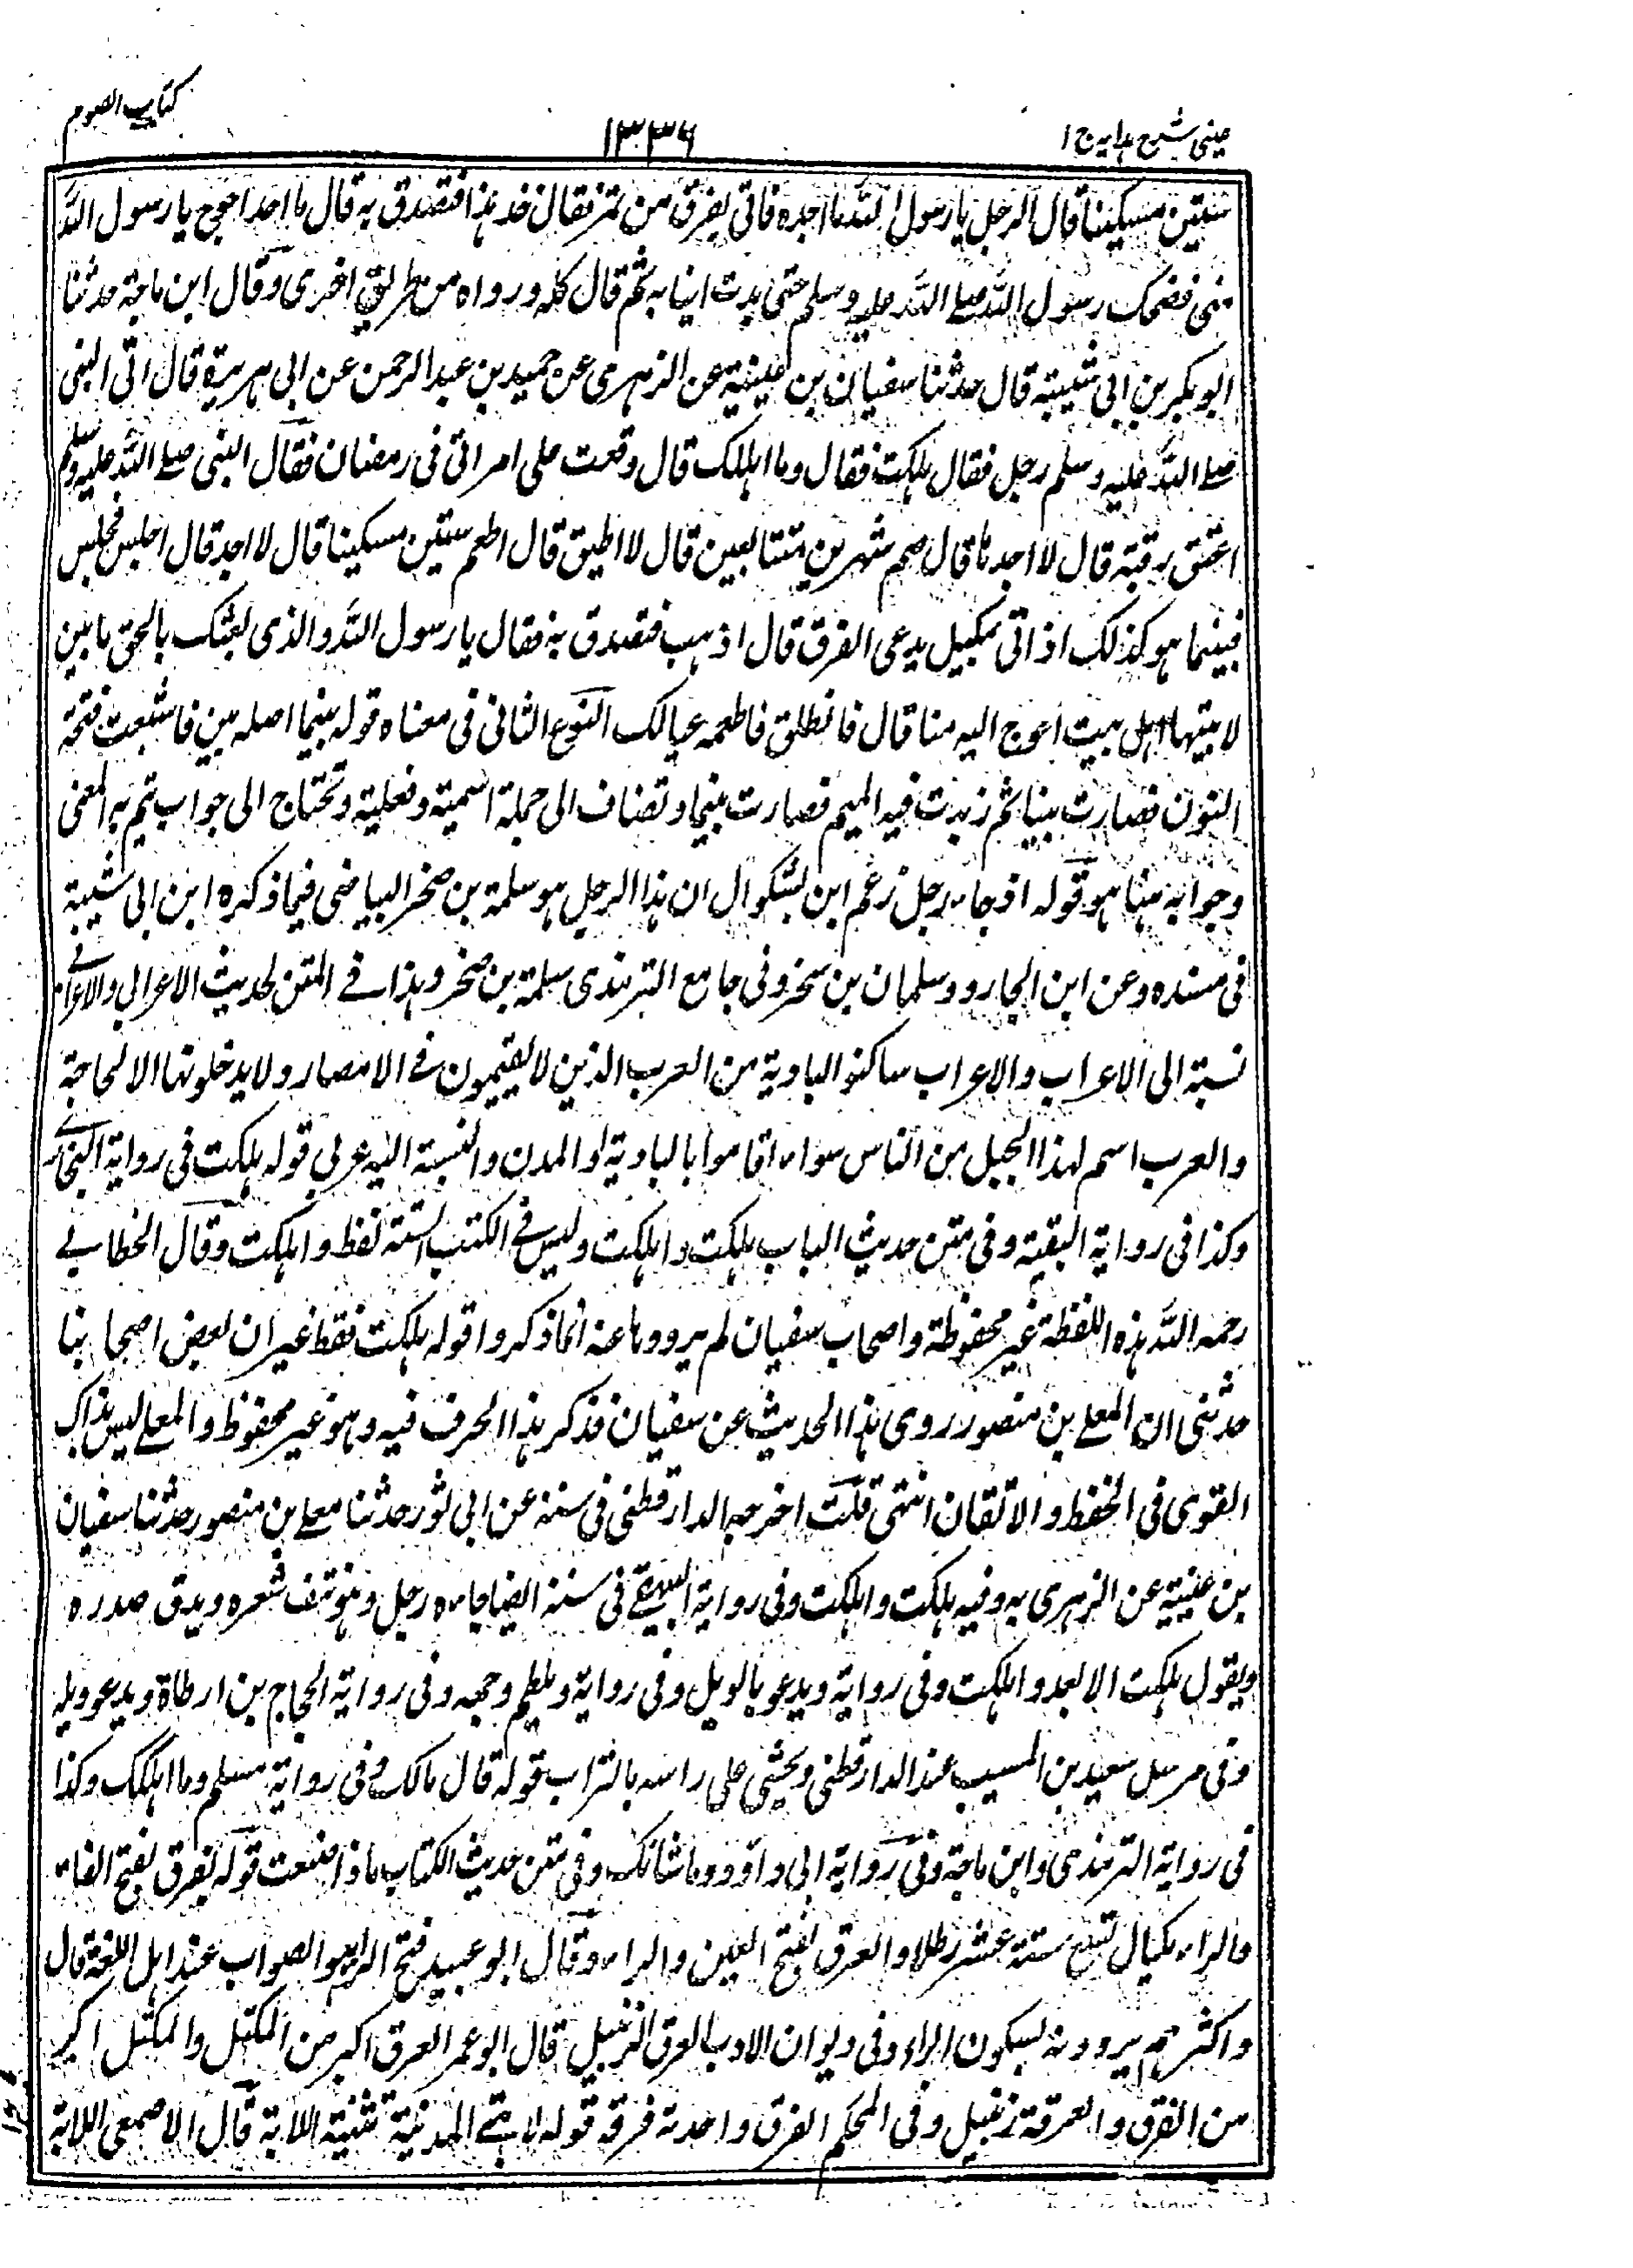 عینی شرح ہدایہ ج ۱
۱۳۳۶
کتاب الصوم
ستین مسکینا قال الرجل یا رسول اللہ ما اجدہ فاتی بفرق من تمر فقال خذ ہذا فتصدق بہ قال ما احد احوج یا رسول اللہ
منی فضحک رسول اللہ صلے اللہ علیہ وسلم حتی بدت انیابہ ثم قال کلہ ورواہ من طریق اخری وقال ابن ماجۃ حدثنا
ابو بکر بن ابی شیبۃ قال حدثنا سفیان بن عیینۃ عن الزہری عن حمید بن عبد الرحمن عن ابی ہریرۃ قال اتی النبی
صلے اللہ علیہ وسلم رجل فقال ہلکت فقال وما اہلک قال وقعت علی امراتی فی رمضان فقال النبی صلے اللہ علیہ وسلم
اعتق رقبۃ قال لا اجدہا قال صم شہرین متتابعین قال لا اطیق قال اطعم ستین مسکینا قال لا اجد قال اجلس فجلس
فبینما ہو کذلک اذ اتی بمکیل یدعی الفرق قال اذہب فتصدق بہ فقال یا رسول اللہ والذی بعثک بالحق ما بین
لابیتہا اہل بیت احوج الیہ منا قال فانطلق فاطعمہ عیالک النوع الثانی فی معناہ قولہ بینما اصلہ بین فاشبعت فتحۃ
النون فصارت بینا ثم زیدت فیہ المیم فصارت بینما وتضاف الی جملۃ اسمیۃ وفعلیۃ وتحتاج الی جواب یتم بہ المعنی
وجوابہ ہنا ہو قولہ اذ جاء رجل زعم ابن بشکوال ان ہذا الرجل ہو سلمۃ بن صخر البیاضی فیما ذکرہ ابن ابی شیبۃ
فی مسندہ وعن ابن الجارود سلمان بن سخر وفی جامع الترمذی سلمۃ بن صخر وہذا فے المتن لحدیث الاعرابی والاعرابے
نسبۃ الی الاعراب والاعراب ساکنو البادیۃ من العرب الذین لا یقیمون فے الامصار ولا یدخلونہا الا لحاجۃ
والعرب اسم لہذا الجیل من الناس سواء اقاموا بالبادیۃ او المدن والنسبۃ الیہ عربی قولہ ہلکت فی روایۃ البخارے
وکذا فی روایۃ البقیۃ وفی متن حدیث الباب ہلکت واہلکت ولیس فے الکتب الستۃ لفظ واہلکت وقال الخطابے
رحمہ اللہ ہذہ اللفظۃ غیر محفوظۃ واصحاب سفیان لم یرووہا عنہ انما ذکروا قولہ ہلکت فقط غیر ان بعض اصحابنا
حدثنی ان المعلے بن منصور روی ہذا الحدیث عن سفیان فذکر ہذا الحرف فیہ وہو غیر محفوظ والمعلے لیس بذاک
القوی فی الحفظ والاتقان انتہی قلت اخرجہ الدارقطنی فی سننہ عن ابی ثور حدثنا معلے بن منصور حدثنا سفیان
بن عیینۃ عن الزہری بہ وفیہ ہلکت واہلکت وفی روایۃ البیہقے فی سننہ ایضا جاءہ رجل وہو ینتف شعرہ ویدق صدرہ
ویقول ہلکت الا بعد واہلکت وفی روایۃ ویدعو بالویل وفی روایۃ ویلطم وجہہ وفی روایۃ الحجاج بن ارطاۃ ویدعو ویلہ
وفی مرسل سعید بن المسیب عند الدارقطنی ویحثی علی راسہ بالتراب قولہ قال مالک وفی روایۃ مسلم وما اہلکک وکذا
فی روایۃ الترمذی وابن ماجۃ وفی روایۃ ابی داؤد وما شانک وفی متن حدیث الکتاب ماذا صنعت قولہ بفرق بفتح الفاء
والراء مکیال تسع ستۃ عشر رطلا والعرق بفتح العین والراء وقال ابو عبید فتح الراء ہو الصواب عند اہل اللغۃ قال
واکثرہم یروونہ بسکون الراء وفی دیوان الادب العرق الزنبیل قال ابو عمر العرق اکبر من المکتل والمکتل اکبر
من الفرق والعرقۃ زنبیل وفی المحکم الفرق واحدتہ فرقۃ قولہ لابتے المدینۃ تثنیۃ اللابۃ قال الاصمعی اللابۃ